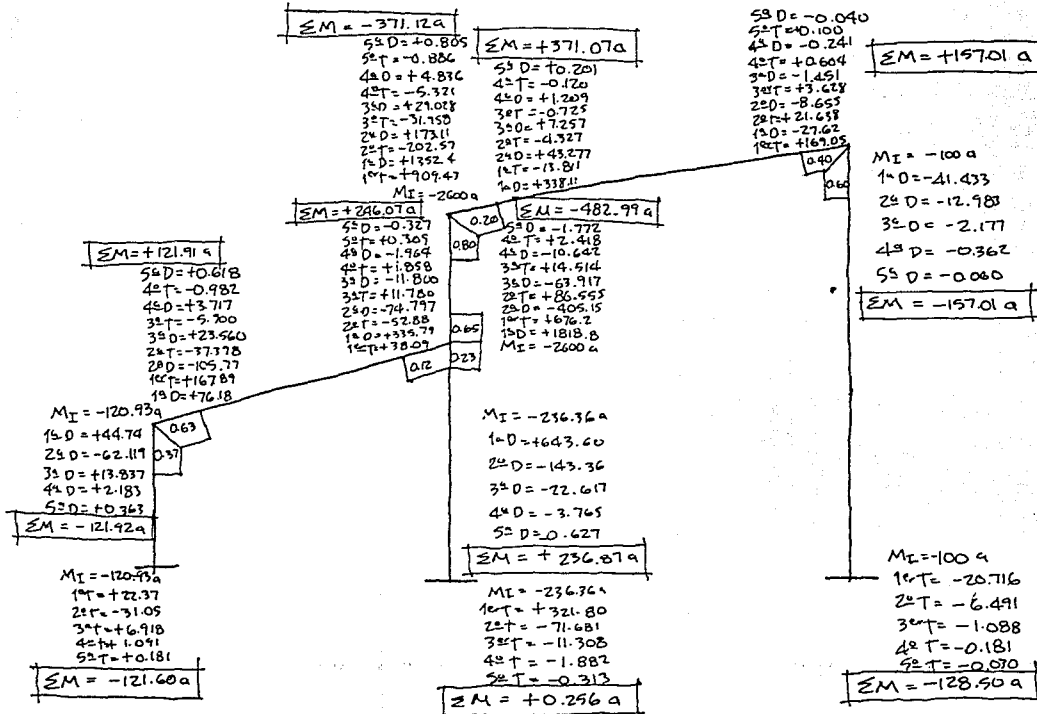 ΣM = -371.12a
5ª D = +0.805
5º T = -0.886
4ª D = +4.836
4º T = -5.321
3ª D = +29.028
3º T = -31.758
2ª D = +173.11
2º T = -202.57
1ª D = +1352.4
1er T = +909.47
MI = -2600a
ΣM = +371.07a
5ª D = +0.201
4º T = -0.120
4ª D = +1.209
3er T = -0.725
3ª D = +7.257
2º T = -4.327
2ª D = +43.277
1er T = -13.811
1ª D = +338.11
5ª D = -0.040
5º T = +0.100
4ª D = -0.241
4º T = +0.604
3ª D = -1.451
3er T = +3.628
2ª D = -8.655
2º T = +21.638
1ª D = -27.62
1er T = +169.05
ΣM = +157.01 a
0.40
0.60
MI = -100 a
1ª D = -41.433
2ª D = -12.983
3ª D = -2.177
4ª D = -0.362
5ª D = -0.060
ΣM = -157.01 a
ΣM = +246.07a
5ª D = -0.327
5º T = +0.305
4ª D = -1.964
4º T = +1.858
3ª D = -11.800
3º T = +11.780
2ª D = -74.797
2º T = -52.88
1ª D = +335.79
1er T = +38.09
0.20
0.80
ΣM = -482.99 a
5ª D = -1.772
4º T = +2.418
4ª D = -10.642
3º T = +14.514
3ª D = -63.917
2º T = +86.555
2ª D = -405.15
1er T = +676.2
1ª D = +1818.8
MI = -2600 a
0.65
0.12
0.23
ΣM = +121.91 a
5ª D = +0.618
4º T = -0.982
4ª D = +3.717
3º T = -5.900
3ª D = +23.560
2º T = -37.398
2ª D = -105.77
1er T = +167.89
1ª D = +76.18
MI = -120.93a
1ª D = +44.74
2ª D = -62.119
3ª D = +13.837
4ª D = +2.183
5ª D = +0.363
ΣM = -121.92a
0.63
0.37
MI = -236.36a
1ª D = +643.60
2ª D = -143.36
3ª D = -22.617
4ª D = -3.765
5ª D = 0.627
ΣM = + 236.87a
MI = -120.93a
1er T = +22.37
2º T = -31.05
3º T = +6.918
4º T = +1.091
5º T = +0.181
ΣM = -121.60a
MI = -236.36a
1er T = +321.80
2º T = -71.681
3er T = -11.308
4º T = -1.882
5º T = -0.313
ΣM = +0.256 a
MI = -100 a
1er T = -20.716
2º T = -6.491
3er T = -1.088
4º T = -0.181
5º T = -0.030
ΣM = -128.50 a